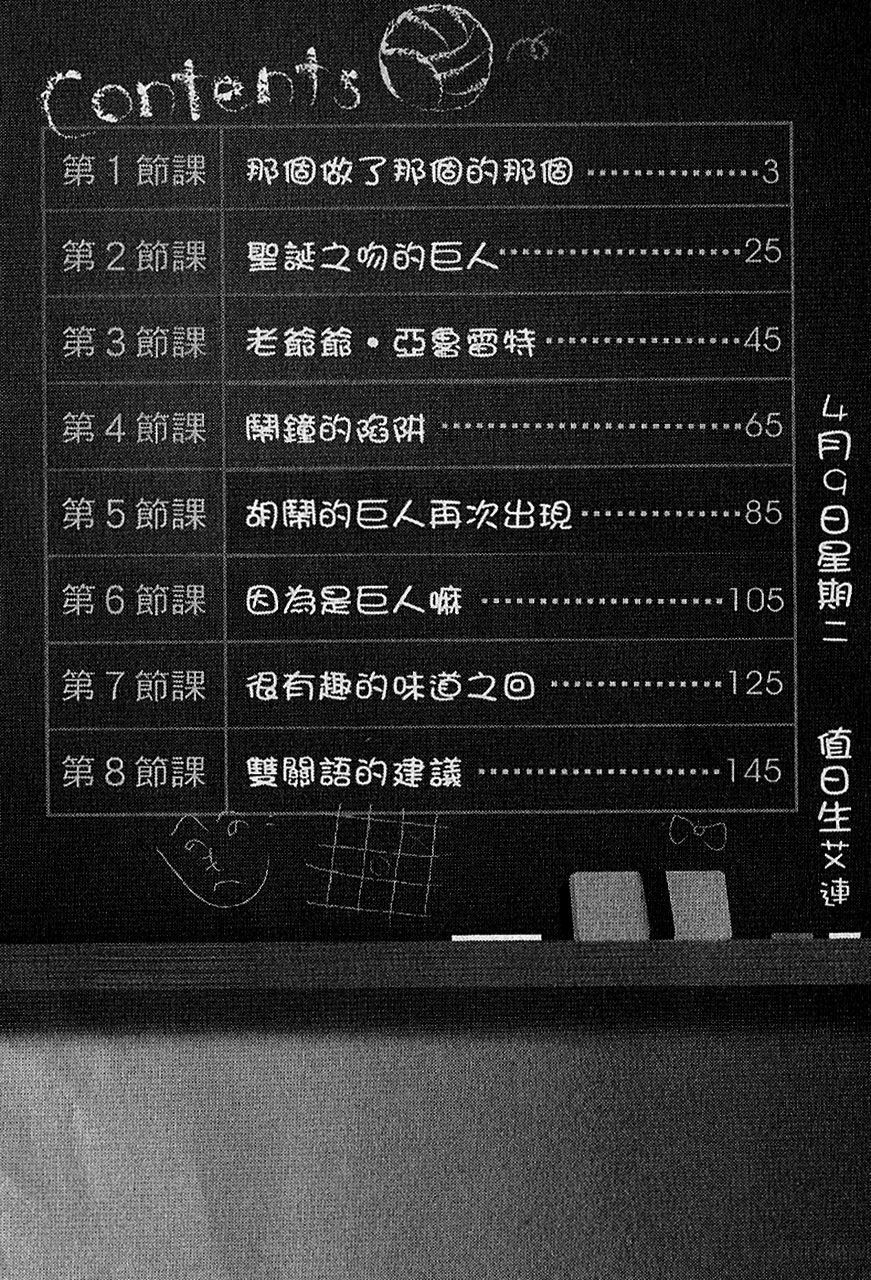 Contents
第1節課 那個做了那個的那個 3
第2節課 聖誕之吻的巨人 25
第3節課 老爺爺・亞魯雷特 45
第4節課 鬧鐘的陷阱 65
第5節課 胡鬧的巨人再次出現 85
第6節課 因為是巨人嘛 105
第7節課 很有趣的味道之回 125
第8節課 雙關語的建議 145
4月9日星期二
值日生艾連